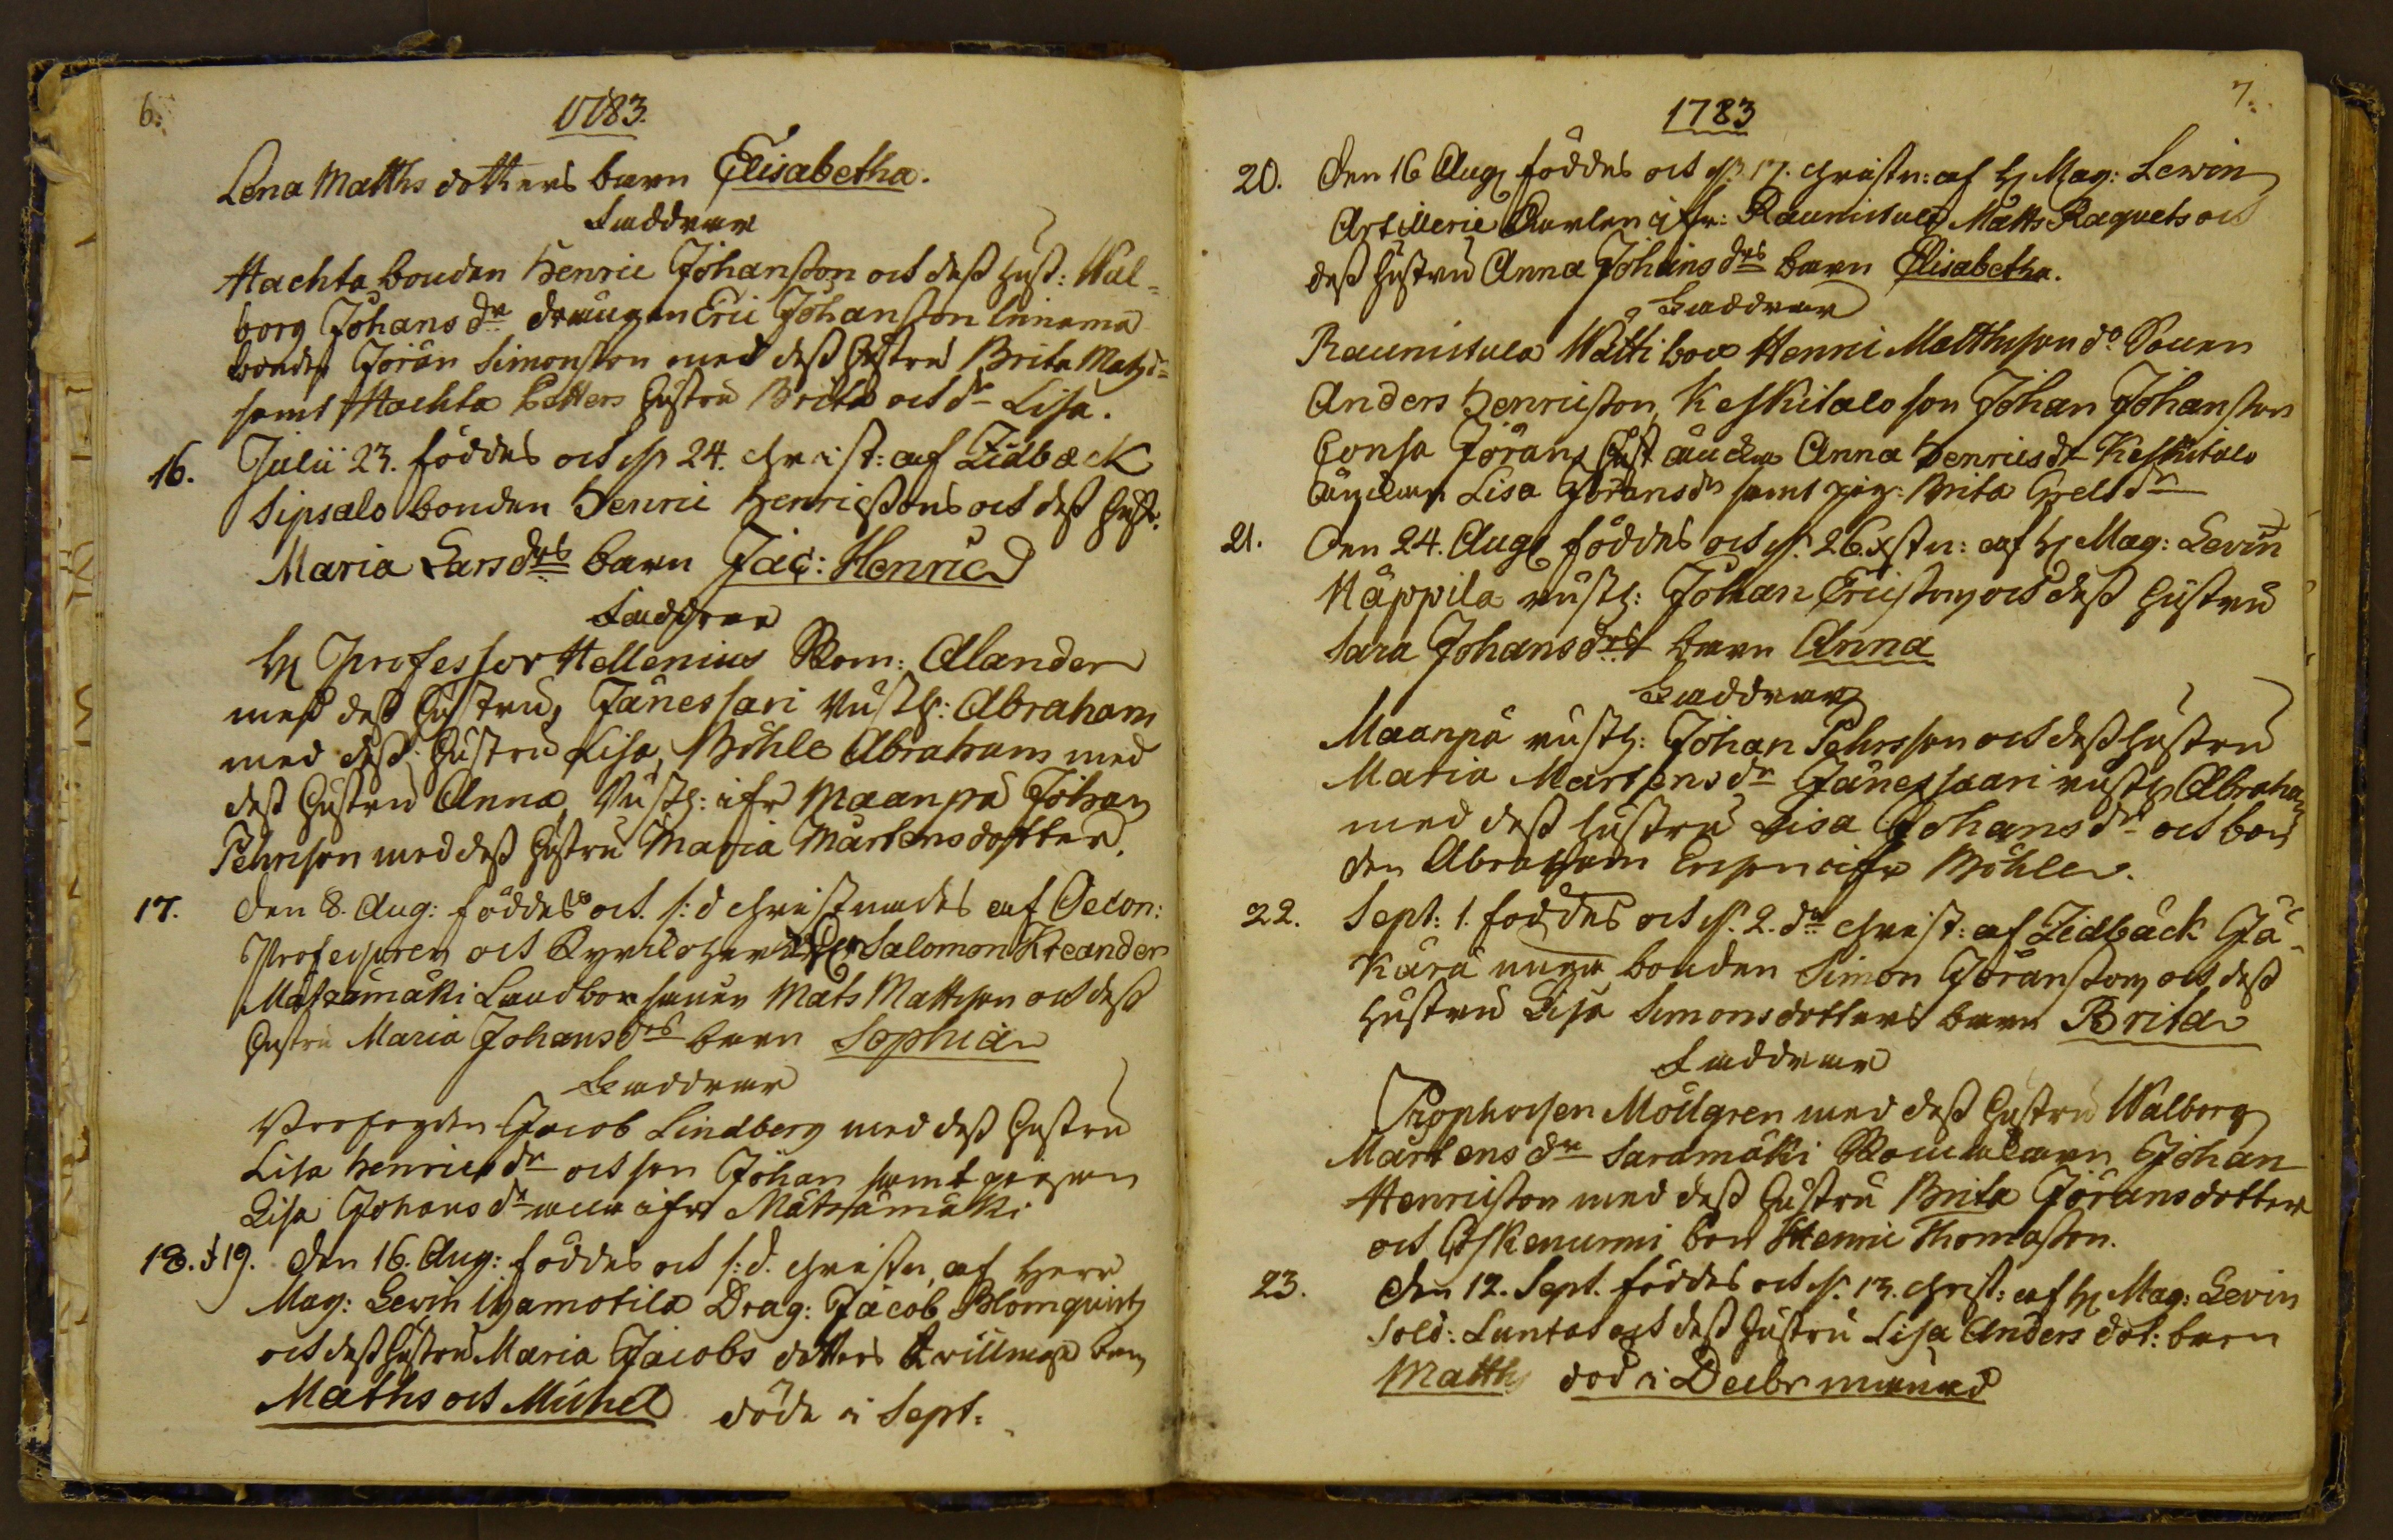 6.
1783.
Lena Matths dotters barn Elisabetha.
Faddrar
Hachta bonden Henric Johansson och dess hust: Wal-
borg Johans dr drängen Eric Johansson
bonden Jöran Simonsson med dess hustru Brita Matzdr
samt Hachta Petters hustru Brita och dr Lisa.
16. Julii 23. föddes och d. 24. christ: af Zidbæck
Sipsalo bonden Henric Henricssons och dess hustr:
Maria Larsdrs barn Jac: Henric
Faddrar
Hr Professor Hellenius Kom: Alander
med dess hustru, Jänessari Rusth: Abraham
med dess hustru Lisa, Böhle Abraham med
dess hustru Anna, Rusth: ifr Maanpä Johan
Pehrsson med dess hustru Maria Mårtensdotter.
17. den 8. Aug: föddes och s: d christnades af Oecon:
Professoren och Kyrkoherden Salomon Kreander
Matzämäki Landbonsonen Mats Mattsson och dess
hustru Maria Johansdrs barn Sophia
Faddrar
Jacob Lindberg med dess hustru
Lisa Henricsdr och son Johan samt pigan
Lisa Johans dr ifr Mätzämäki
18. & 19. den 16. Aug: föddes och s: d. christn. af Herr
Mag: Levin Drag: Jacob Blomquist
och dess hustru Maria Jacobs dotters tvillinga barn
Maths och Michel döde i Sept:
7.
1783
20. Den 16 Aug föddes och d. 17. christn: af Hr Mag: Lewin
Artillerie Karlen ifr: Raunistula Matts Raquets och
dess hustru Anna Johans drs barn Elisabetha.
Faddrar
Raunistula Wätti boe Henric Matthsson do Sonen
Anders Henricsson, Keskitalo son Johan Johansson
Consa Jörans hust Anna Henricsdr Keskitalo
Lisa Jöransdr samt pig: Brita Greldr
21. Den 24. Aug föddes och d. 26. xstn: af Hr Mag: Levin
Käppilä rusth: Johan Ericsson och dess hustru
Sara Johansdrs barn Anna
Faddrar
Maanpä rusth: Johan Pehrsson och dess hustru
Maria Mårtens dr Jänessaari rusth Abraham
med dess hustru Lisa Johansdr och bon
den Abraham Ersson ifr Böhle.
22. Sept: 1. foddes och d. 2. do christ: af Zidbäck Jä-
kärä unga bonden Simon Jöransson och dess
hustru Lisa Simonsdotters barn Brita
Faddrar
Mollgren med dess hustru Walborg
Mårtens dr Saramäki Johan
Henricsson med dess hustru Brita Jöransdotter
och Koskenurmi bon Henric Thomasson.
23. Den 12. Sept. föddes och d. 13. christ: af Hr Mag: Levin
Sold: Luntas och dess hustru Lisa Anders dot: barn
Matths död i Decbr månad